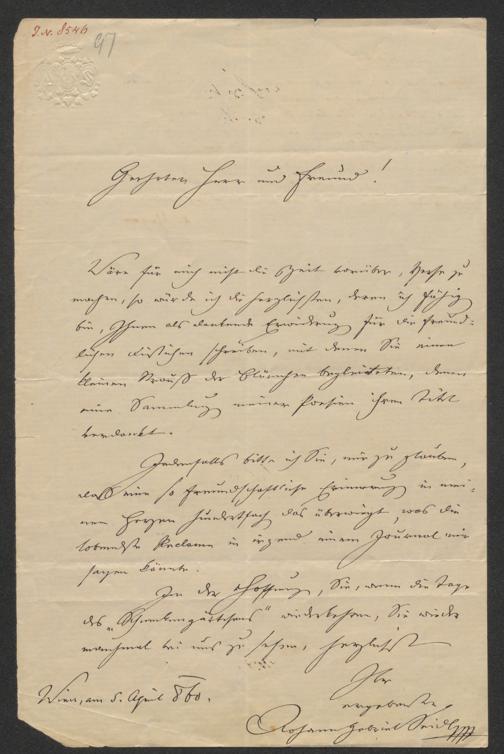 I. N. 8546
97
Geehrter Herr und Freund!
Wäre für mich nicht die Zeit vorüber, Verse zu
machen, so würde ich die herzlichsten, deren ich fähig
bin, Ihnen als dankende Erwiderung für die freund-
lichen schreiben, mit denen Sie einen
kleinen Strauß der Blümchen begleiteten, denen
eine Sammlung meiner Poesien ihren Titel
verdankt.
Jedenfalls bitte ich Sie, mir zu glauben,
daß eine so freundschaftliche Erinnerung in mei-
nem Herzen hundertfach das überwiegt, was die
lobendste Reclame in irgend einem Journal mir
sagen könnte.
In der Hoffnung, Sie, wenn die Tage
des „ “ wiederkehren, Sie wieder
manchmal bei uns zu sehen, herzlichst
Ihr
ergebenster
Wien, am 5. April 860.
Johann Gabriel Seidl